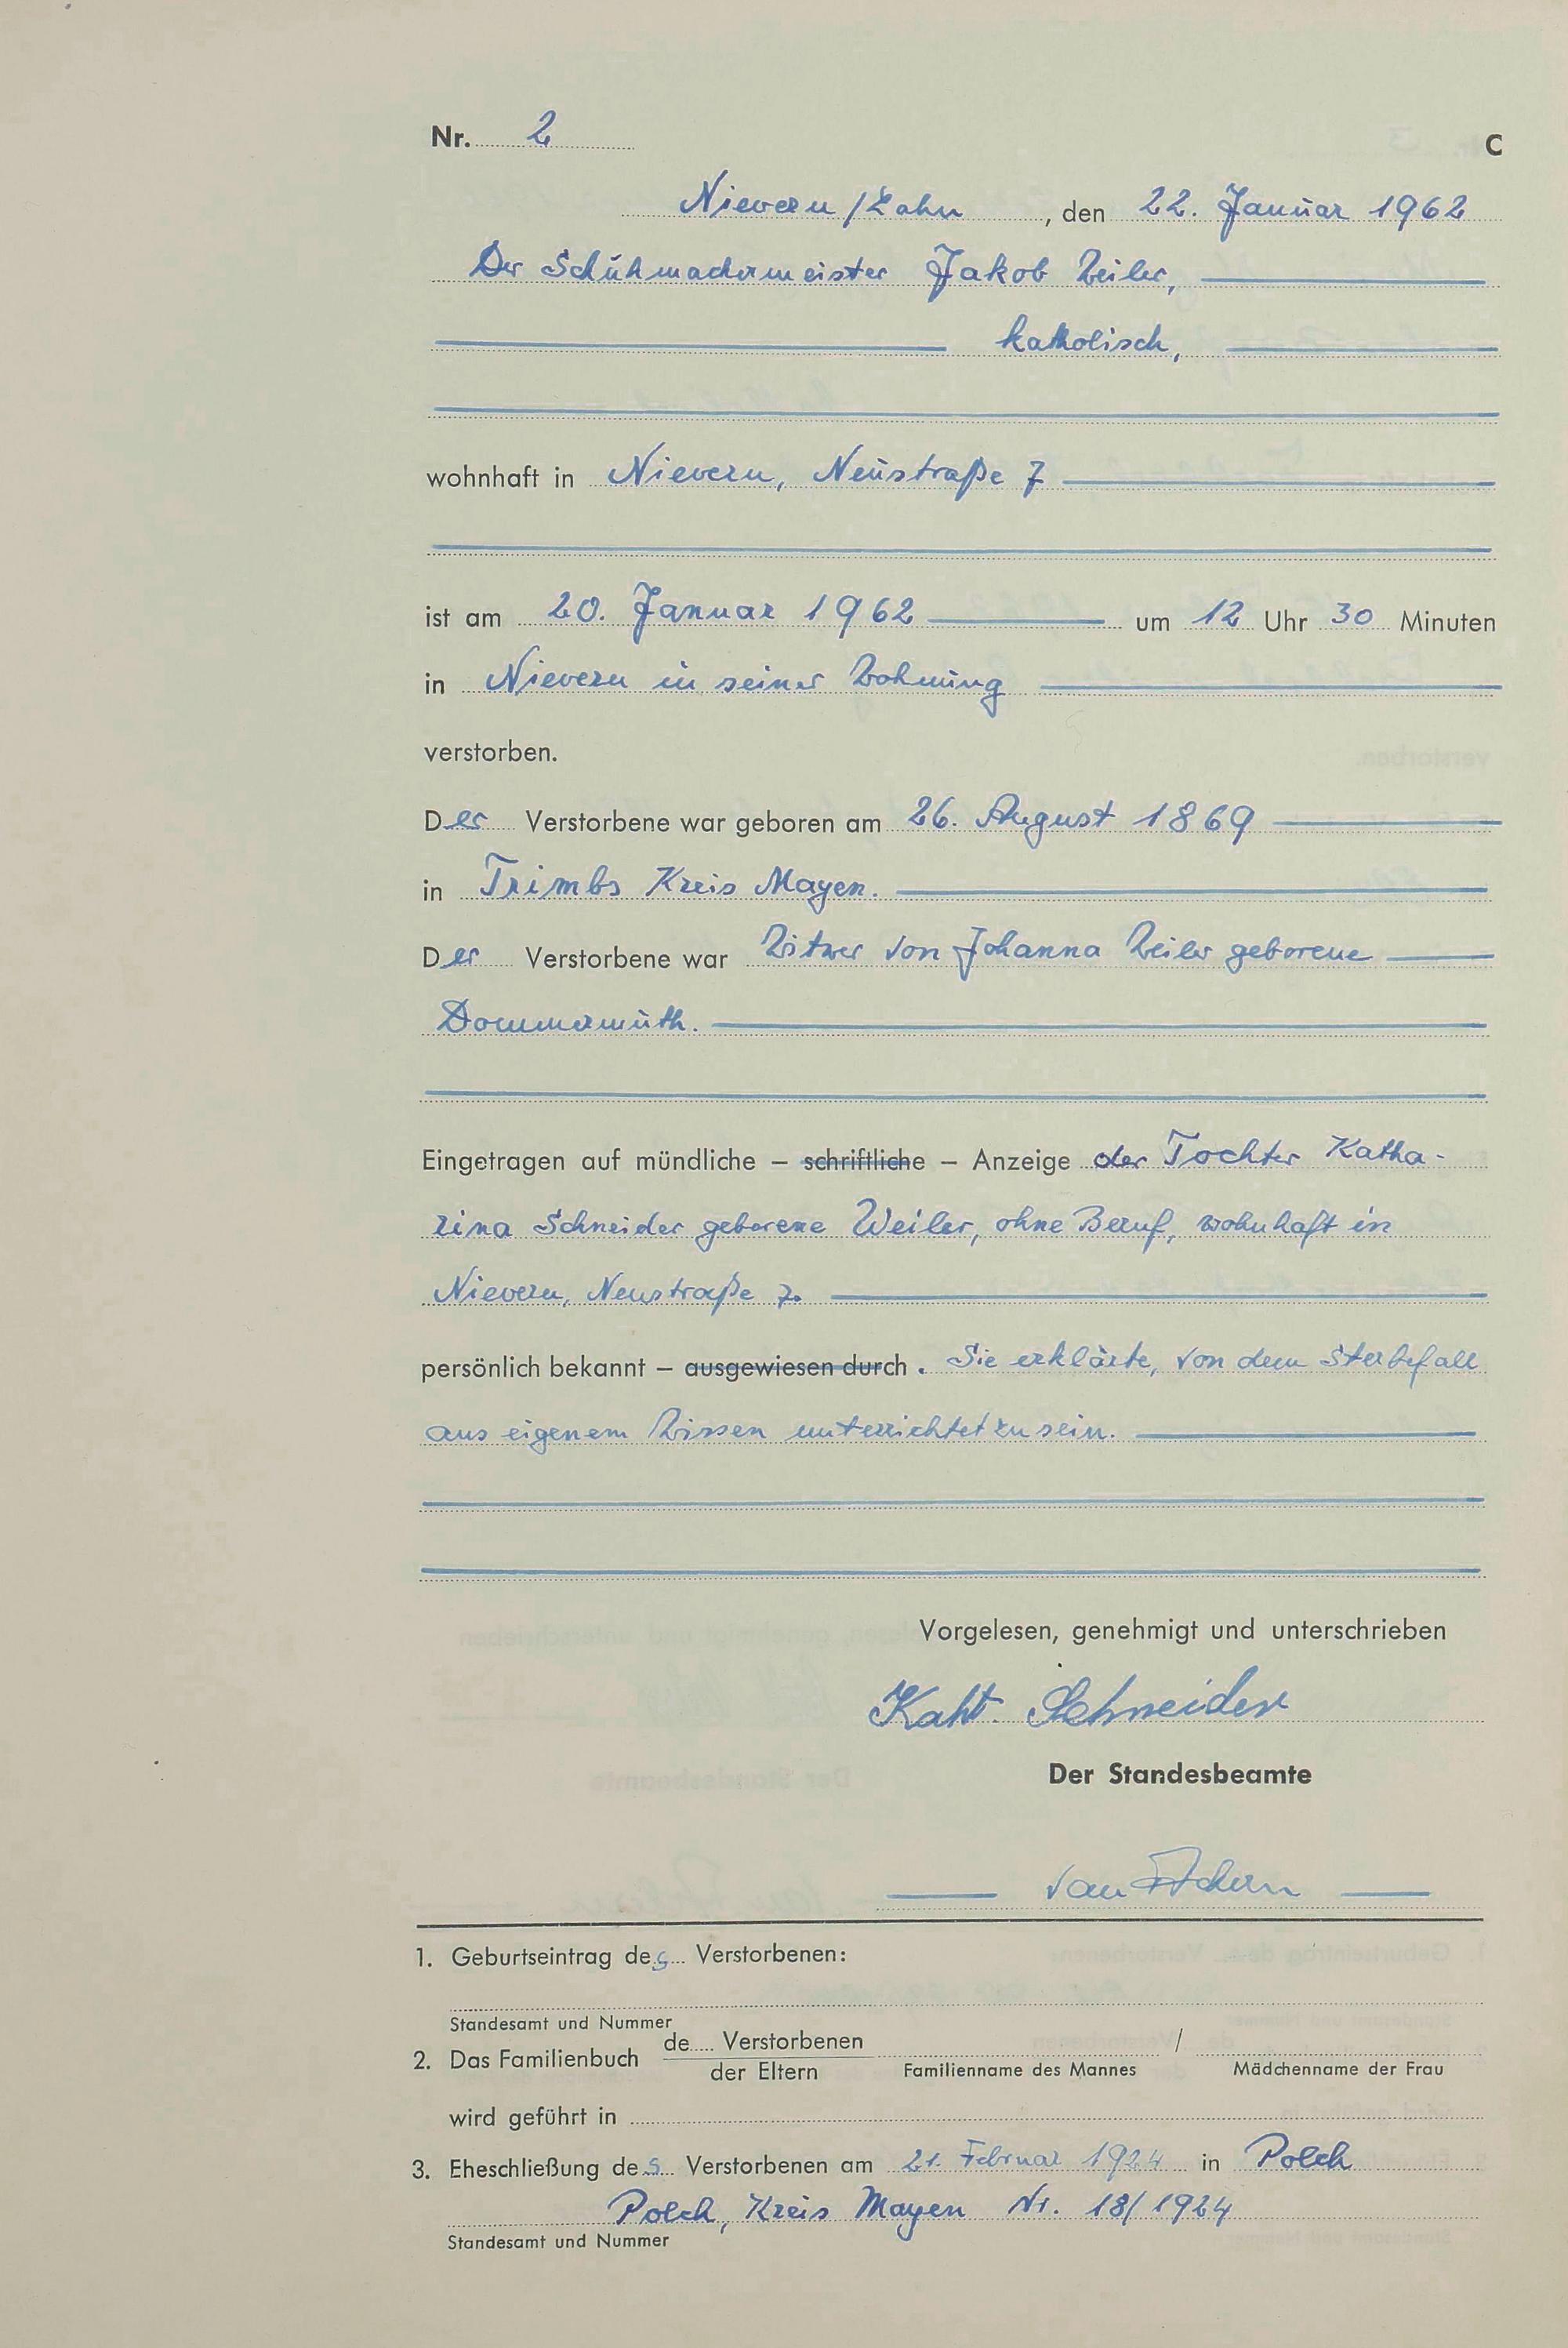 Nr. 2
C
Nievern/Lahn, den 22. Januar 1962
Der Schuhmachermeister Jakob Weiler,
katholisch,
wohnhaft in Nievern, Neustraße 7
ist am 20. Januar 1962 um 12 Uhr 30 Minuten
in Nievern in seiner Wohnung
verstorben.
Der Verstorbene war geboren am 26. August 1869
in Trimbs Kreis Mayen.
Der Verstorbene war Witwer von Johanna Weiler geborene
Dommermuth.
Eingetragen auf mündliche – schriftliche – Anzeige der Tochter Katha-
rina Schneider geborene Weiler, ohne Beruf, wohnhaft in
Nievern, Neustraße 7.
persönlich bekannt – ausgewiesen durch. Sie erklärte, von dem Sterbefall
aus eigenem Wissen unterrichtet zu sein.
Vorgelesen, genehmigt und unterschrieben
Kaht. Schneider
Der Standesbeamte
van
1. Geburtseintrag des Verstorbenen:
Standesamt und Nummer
2. Das Familienbuch de.... Verstorbenen /
der Eltern Familienname des Mannes Mädchenname der Frau
wird geführt in
3. Eheschließung des Verstorbenen am 21. Februar 1924 in Polch
Polch, Kreis Mayen Nr. 13/1924
Standesamt und Nummer